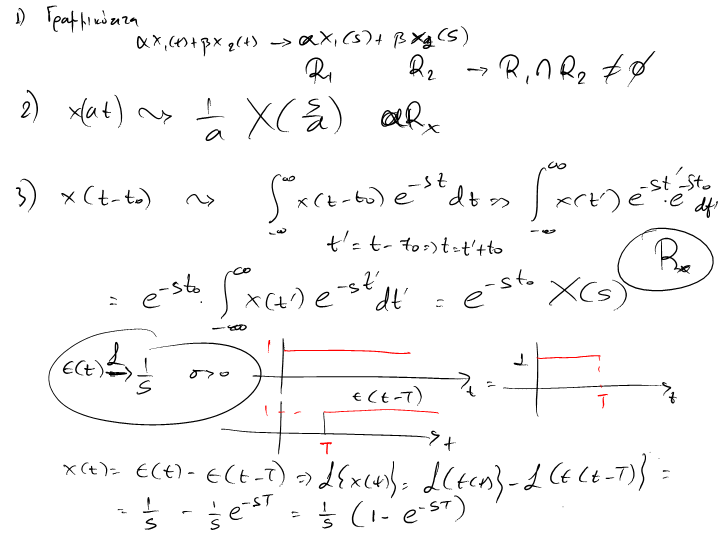 1) Γραμμικότητα
αx₁(t)+βx₂(t) → αX₁(s)+βX₂(s)
R₁ R₂ → R₁∩R₂ ≠ ∅
2) x(at) ⤳ 1/a X(s/a) aRₓ
3) x(t-t₀) ⤳ ∫_{-∞}^{∞} x(t-t₀) e^{-st} dt ⇒ ∫_{-∞}^{∞} x(t') e^{-st'}·e^{-st₀} dt'
t' = t-t₀ ⇒ t=t'+t₀
Rₓ
= e^{-st₀}·∫_{-∞}^{∞} x(t') e^{-st'} dt' = e^{-st₀} X(s)
ε(t) 𝓛→ 1/s σ>0
1 t = 1 T t
ε(t-T)
1 T t
x(t)= ε(t) - ε(t-T) ⇒ 𝓛{x(t)} = 𝓛{ε(t)} - 𝓛{ε(t-T)} =
= 1/s - 1/s e^{-sT} = 1/s (1 - e^{-sT})